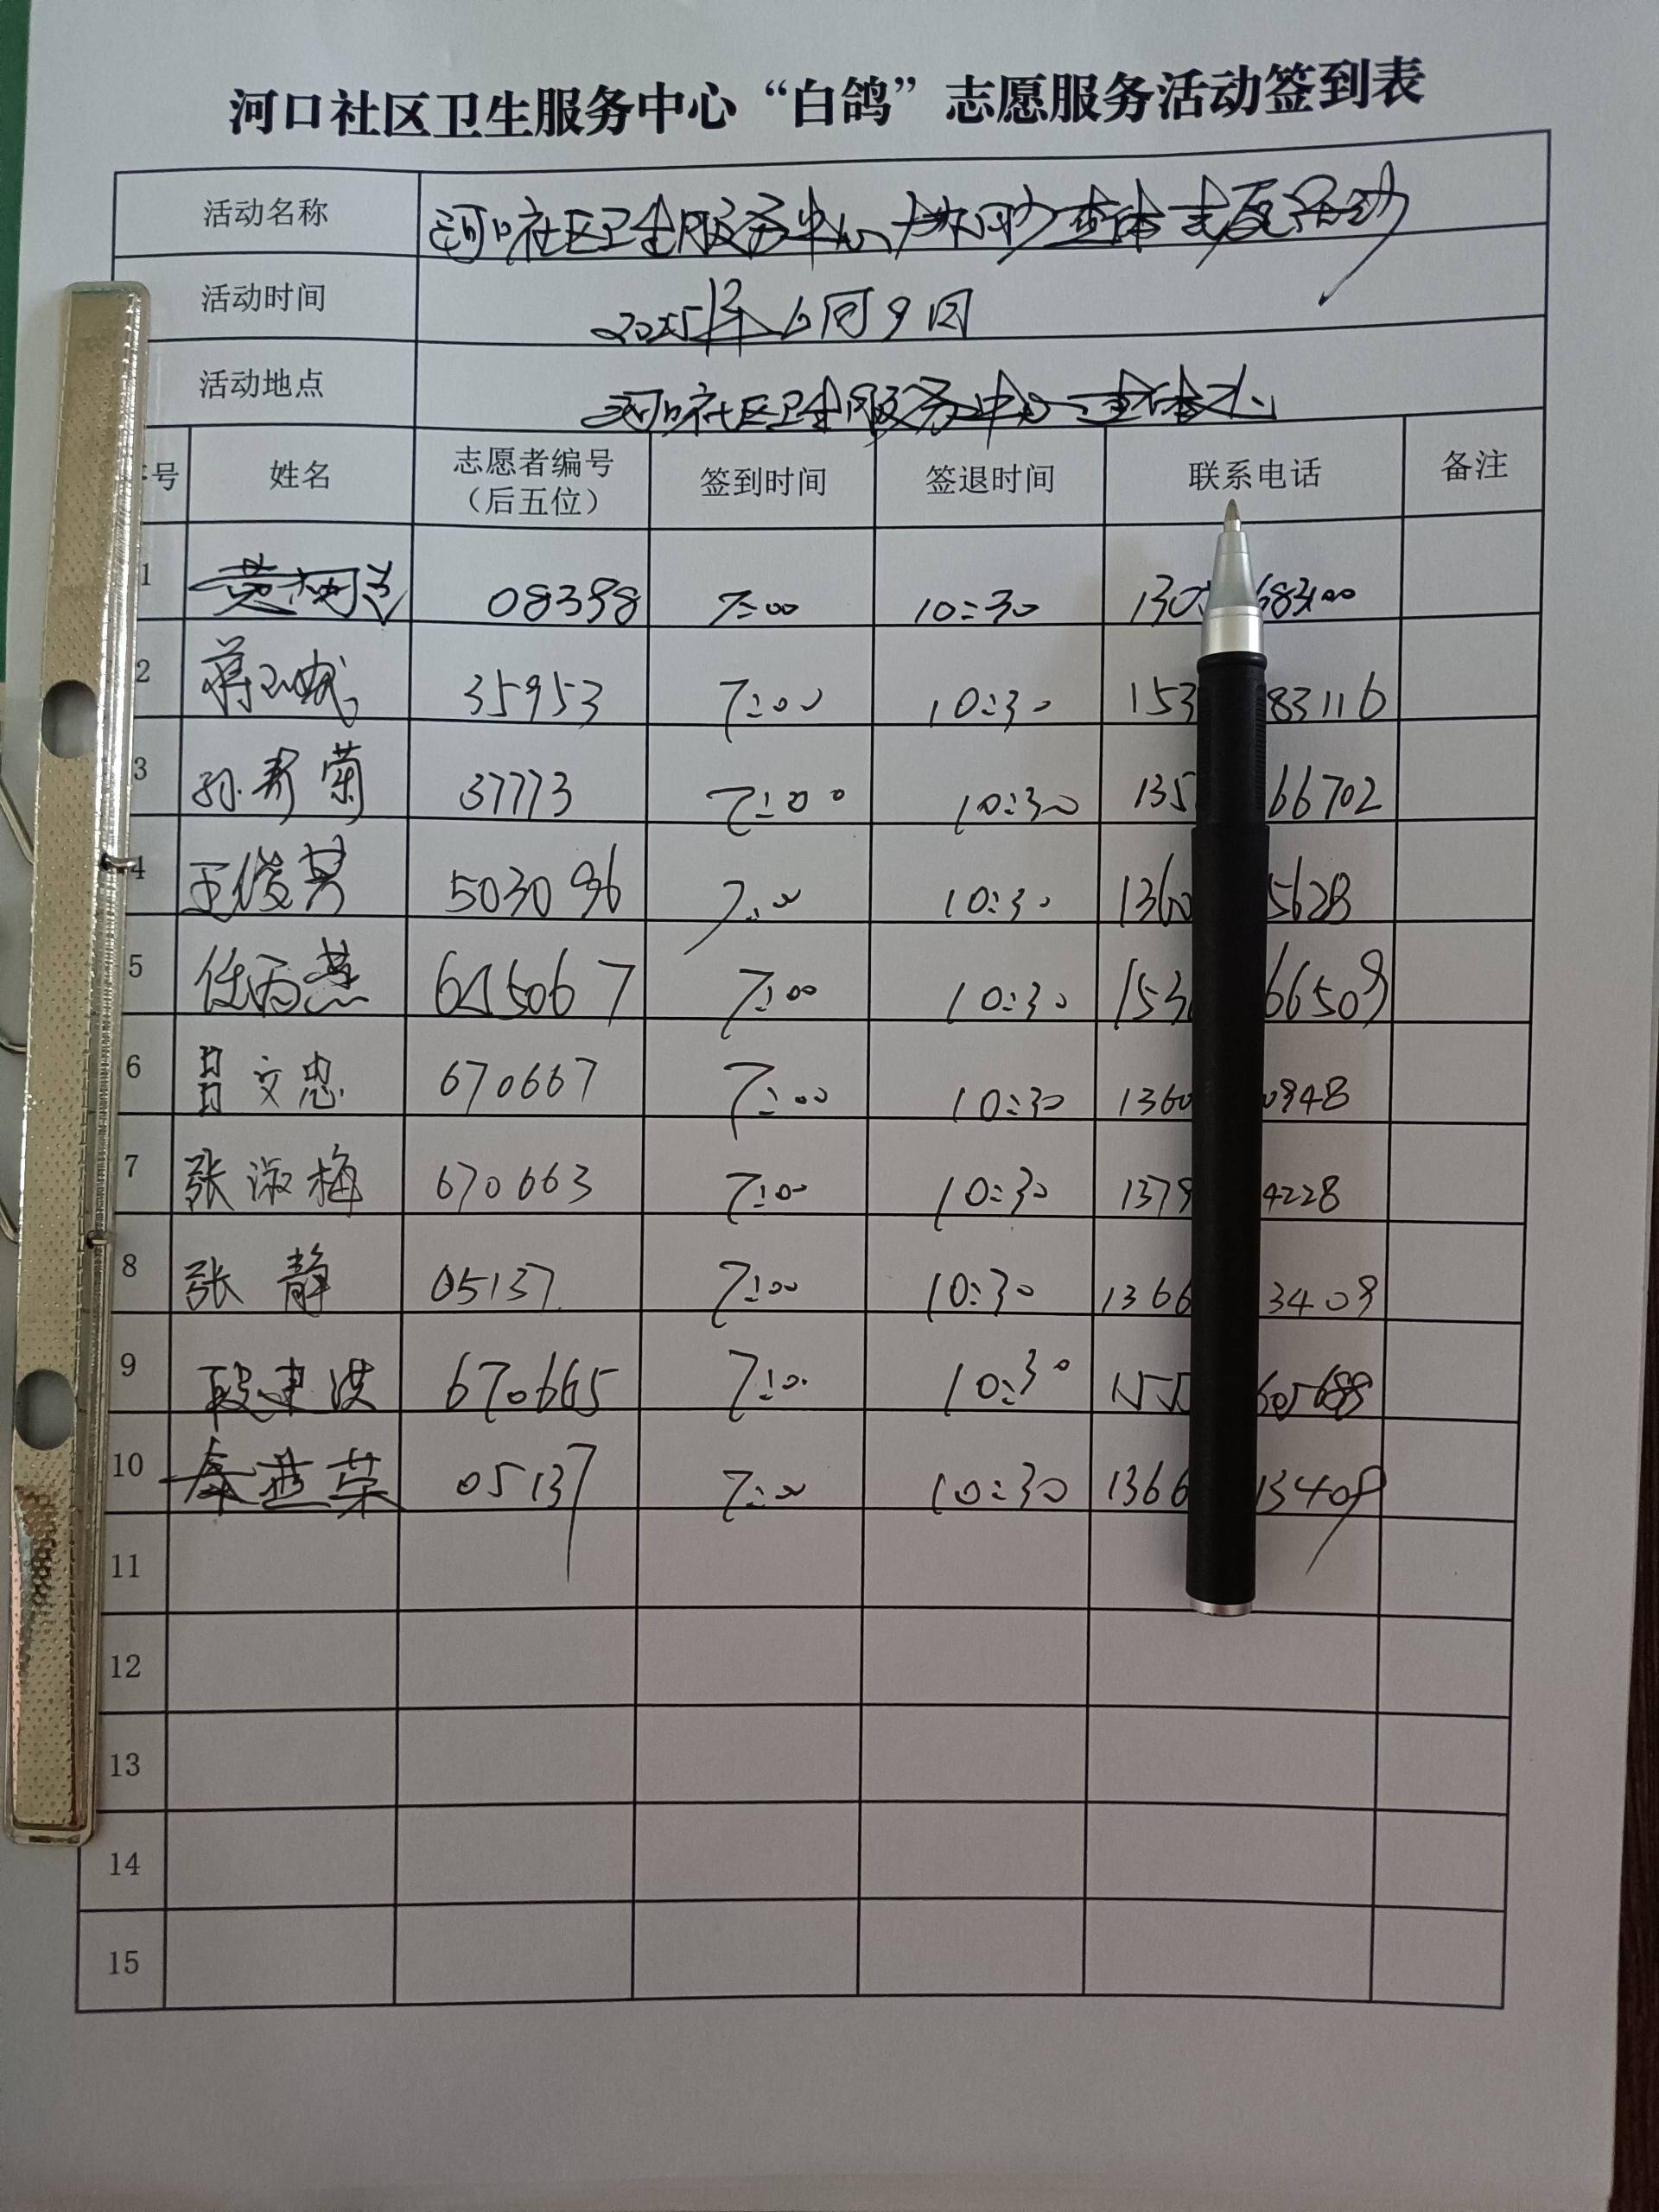 河口社区卫生服务中心“白鸽”志愿服务活动签到表
活动名称 河口社区卫生服务中心协助查体志愿活动
活动时间 2025年6月9日
活动地点 河口社区卫生服务中心查体大
号 姓名 志愿者编号（后五位） 签到时间 签退时间 联系电话 备注
1 08398 7:00 10:30 130 683100
2 蒋 斌 35953 7:00 10:30 153 83116
3 孙秀菊 37773 7:00 10:30 135 66702
4 王俊英 503096 7:00 10:30 1360 5628
5 任丙燕 615067 7:00 10:30 153 66509
6 吕文忠 670667 7:00 10:30 1360 0948
7 张淑梅 670663 7:00 10:30 1379 4228
8 张静 05137 7:00 10:30 1366 3409
9 段建洪 670665 7:00 10:30 155 605688
10 秦燕荣 05137 7:00 10:30 1366 13409
11
12
13
14
15